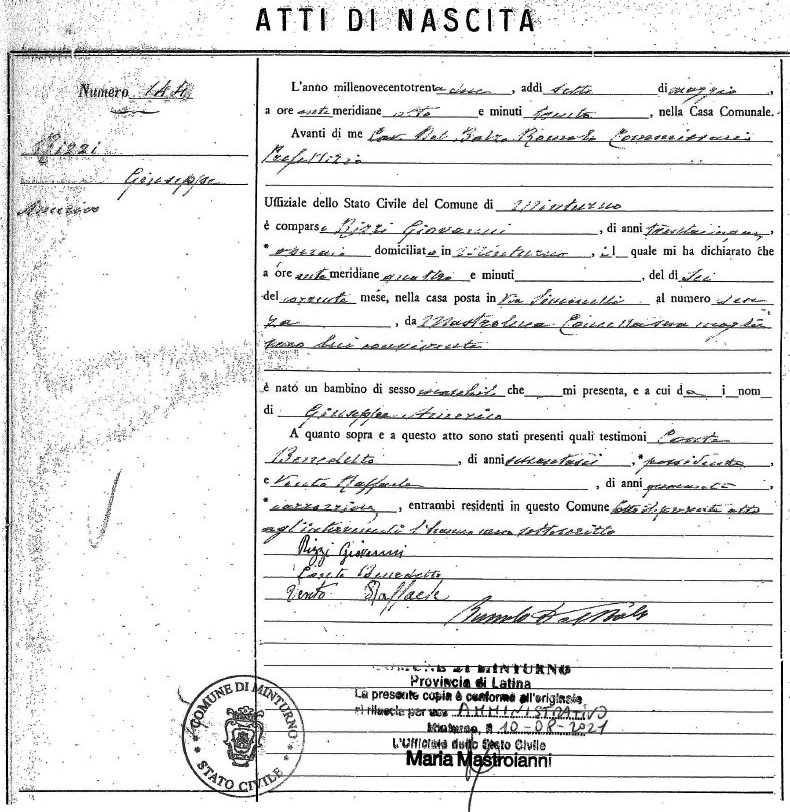 ATTI DI NASCITA
Numero 144
Rizzi
Giuseppe
Americo
L'anno millenovecentotrentadue, addì sette di maggio,
a ore antimeridiane otto e minuti trenta, nella Casa Comunale.
Avanti di me Cav. Del Balzo Romolo Commissario
Prefettizio
Uffiziale dello Stato Civile del Comune di Minturno
è comparso Rizzi Giovanni, di anni trentacinque,
* operaio domiciliato in Minturno, il quale mi ha dichiarato che
a ore antimeridiane quattro e minuti, del dì Sei
del corrente mese, nella casa posta in Via Simonelli al numero sen
za, da Mastroluca sua moglie
seco lui convivente
è nato un bambino di sesso maschile che mi presenta, e a cui dà i nom
di Giuseppe Americo
A quanto sopra e a questo atto sono stati presenti quali testimoni Conte
Benedetto, di anni, * possidente,
e Vento Raffaele, di anni quaranta,
*, entrambi residenti in questo Comune Letto il presente atto
agl'intervenuti l'hanno meco sottoscritto
Rizzi Giovanni
Conte Benedetto
Vento Raffaele
Romolo Del Balzo
COMUNE DI MINTURNO
Provincia di Latina
La presente copia è conforme all'originale
si rilascia per uso AMMINISTRATIVO
Minturno, il 10-08-2021
L'Ufficiale dello Stato Civile
Maria Mastroianni
COMUNE DI MINTURNO
* STATO CIVILE *